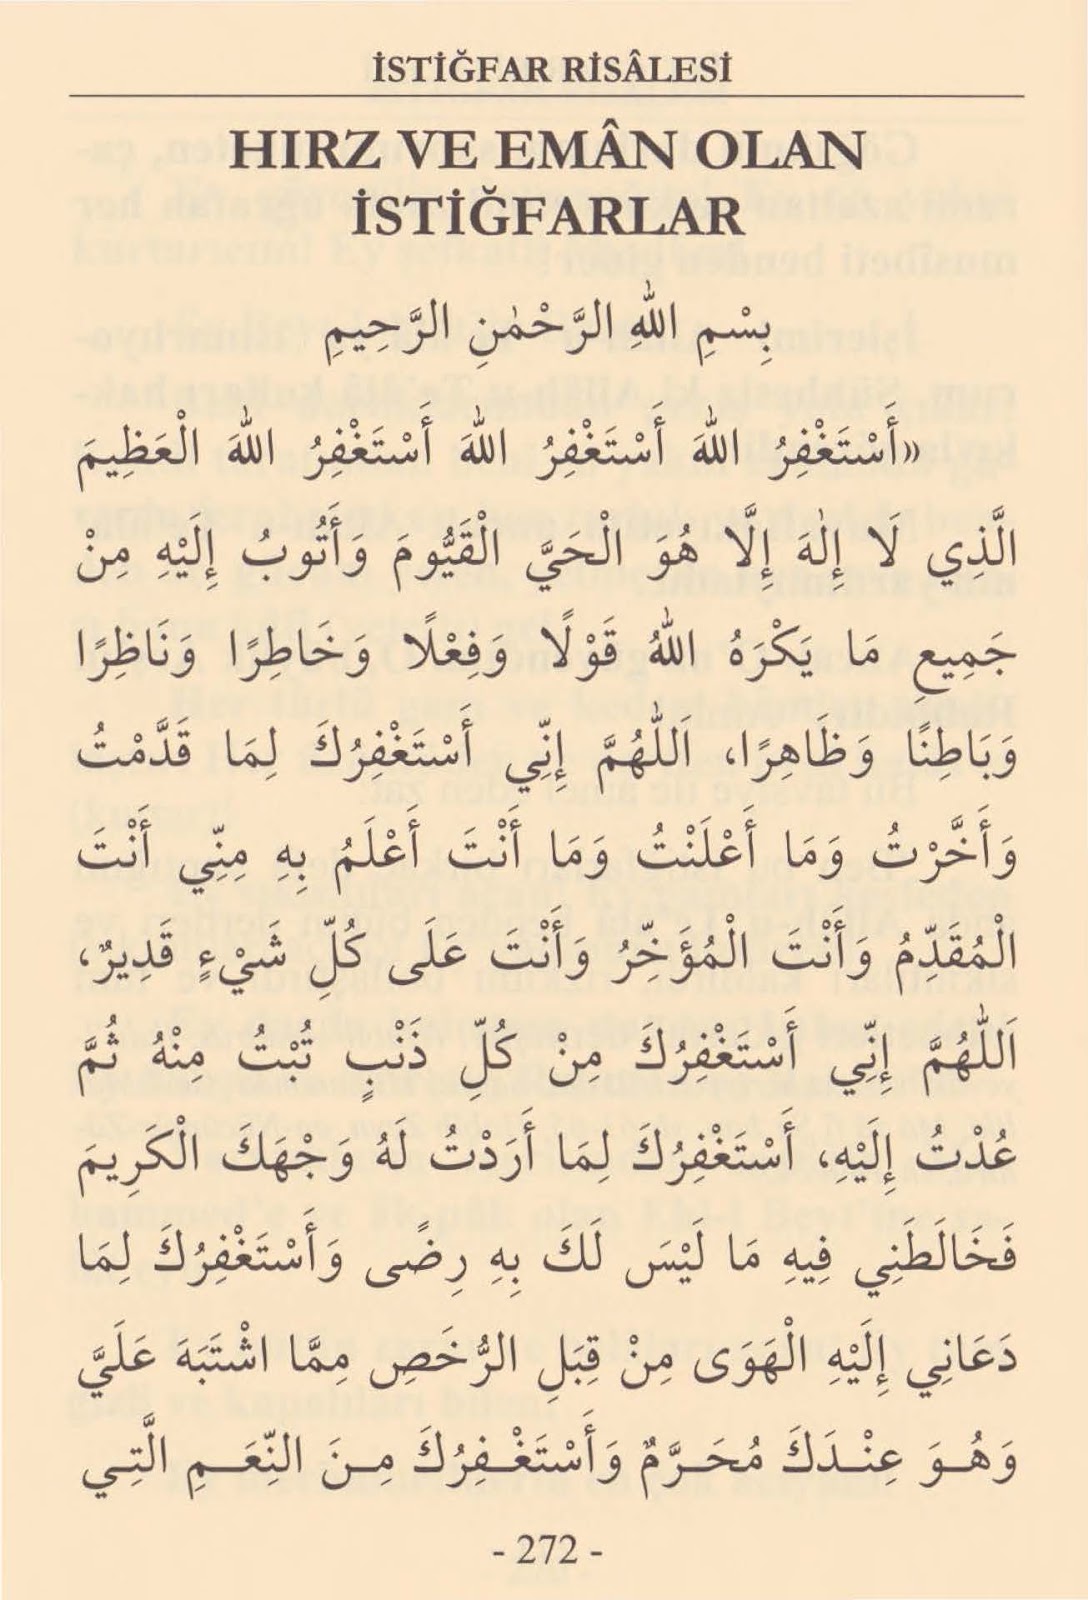 İSTİĞFAR RİSÂLESİ
HIRZ VE EMÂN OLAN
İSTİĞFARLAR
بِسْمِ اللهِ الرَّحْمٰنِ الرَّحِيمِ
«أَسْتَغْفِرُ اللهَ أَسْتَغْفِرُ اللهَ أَسْتَغْفِرُ اللهَ الْعَظِيمَ
الَّذِي لَا إِلٰهَ إِلَّا هُوَ الْحَيَّ الْقَيُّومَ وَأَتُوبُ إِلَيْهِ مِنْ
جَمِيعِ مَا يَكْرَهُ اللهُ قَوْلًا وَفِعْلًا وَخَاطِرًا وَنَاظِرًا
وَبَاطِنًا وَظَاهِرًا، اَللّٰهُمَّ إِنِّي أَسْتَغْفِرُكَ لِمَا قَدَّمْتُ
وَأَخَّرْتُ وَمَا أَعْلَنْتُ وَمَا أَنْتَ أَعْلَمُ بِهِ مِنِّي أَنْتَ
الْمُقَدِّمُ وَأَنْتَ الْمُؤَخِّرُ وَأَنْتَ عَلَى كُلِّ شَيْءٍ قَدِيرٌ،
اَللّٰهُمَّ إِنِّي أَسْتَغْفِرُكَ مِنْ كُلِّ ذَنْبٍ تُبْتُ مِنْهُ ثُمَّ
عُدْتُ إِلَيْهِ، أَسْتَغْفِرُكَ لِمَا أَرَدْتُ لَهُ وَجْهَكَ الْكَرِيمَ
فَخَالَطَنِي فِيهِ مَا لَيْسَ لَكَ بِهِ رِضًى وَأَسْتَغْفِرُكَ لِمَا
دَعَانِي إِلَيْهِ الْهَوَى مِنْ قِبَلِ الرُّخَصِ مِمَّا اشْتَبَهَ عَلَيَّ
وَهُوَ عِنْدَكَ مُحَرَّمٌ وَأَسْتَغْفِرُكَ مِنَ النِّعَمِ الَّتِي
- 272 -